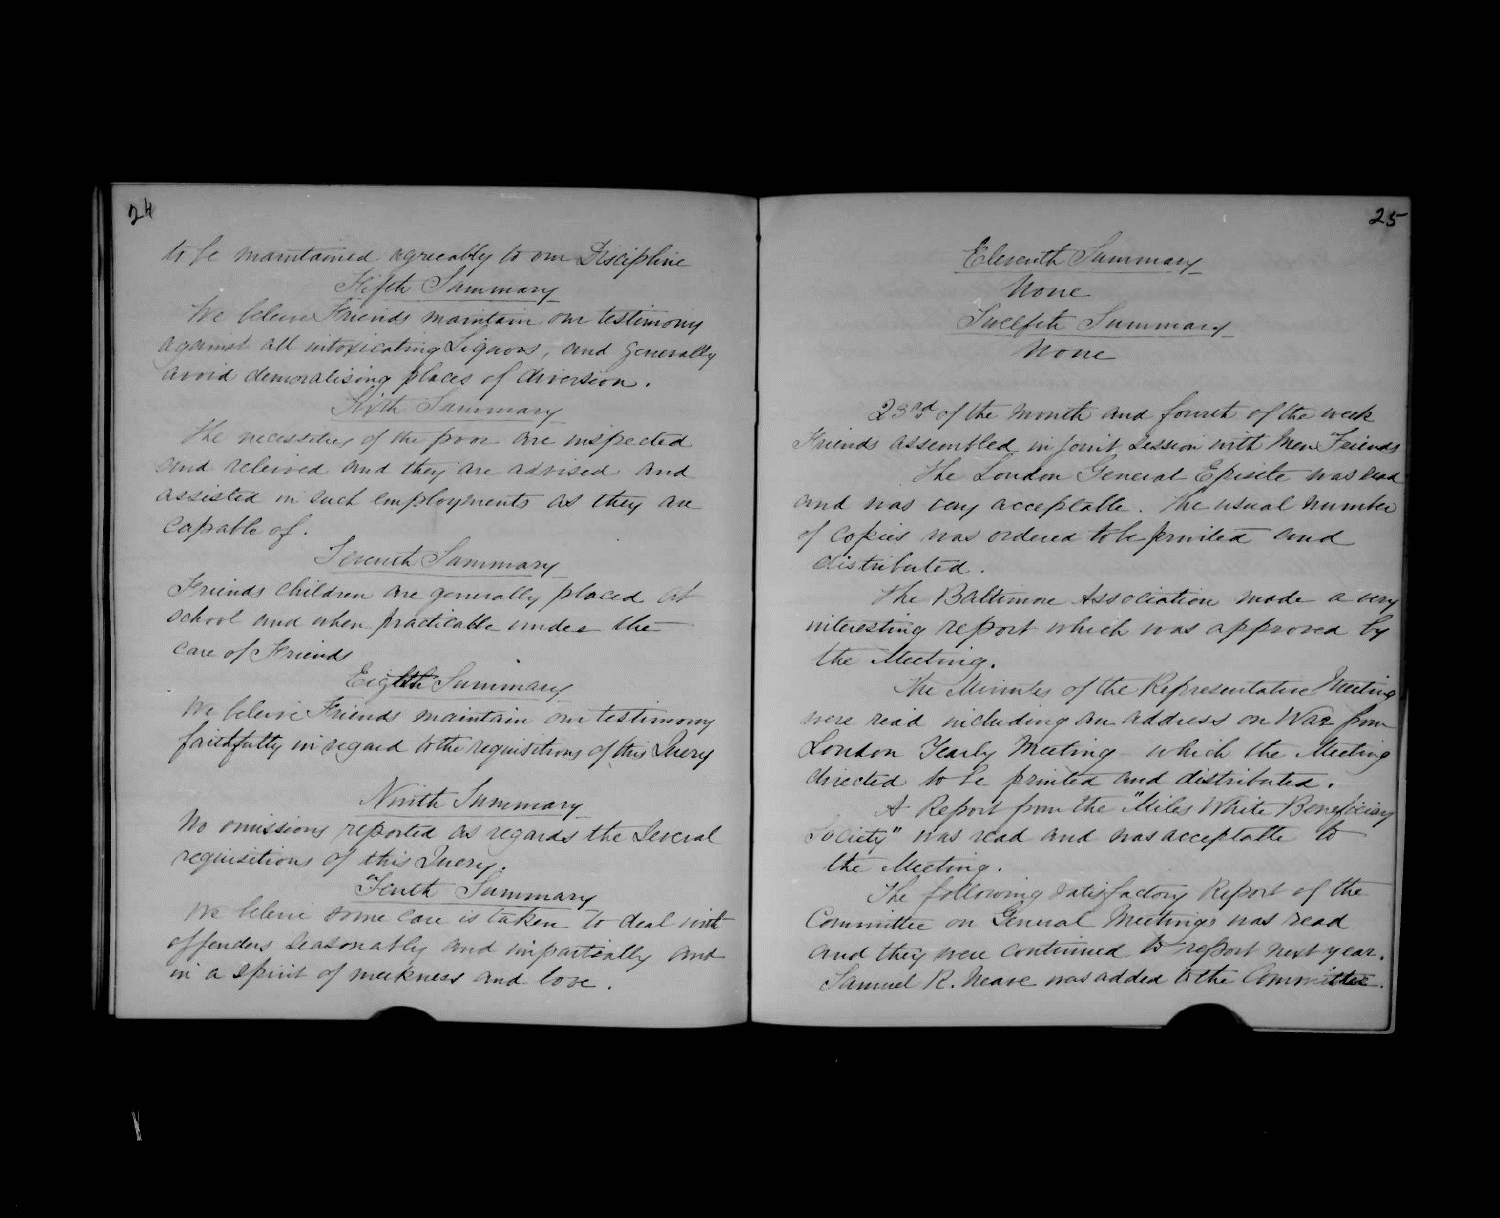 24
to be maintained agreeably to our Discipline
Fifth Summary
We beleive Friends maintain our testimony
against all intoxicating Liquors, and generally
avoid demoralising places of diversion.
Sixth Summary
The necessities of the poor are inspected
and releived and they are advised and
assisted in such employments as they are
capable of.
Seventh Summary
Friends children are generally placed at
school and when practicable under the
care of Friends
Eighth Summary
We beleive Friends maintain our testimony
faithfully in regard to the requisitions of this Query
Ninth Summary
No omissions reported as regards the Several
requisitions of this Query.
Tenth Summary
We beleive some care is taken to deal with
offenders seasonably and impartially and
in a spirit of meekness and love.
25
Eleventh Summary
None
Twelfth Summary
None
23rd of the month and fourth of the week
Friends assembled in joint Session with Men Friends
The London General Epistle was read
and was very acceptable. The usual number
of copies was ordered to be printed and
distributed.
The Baltimore Association made a very
interesting report which was approved by
the Meeting.
The Minutes of the Representative Meeting
were read including an address on War from
London Yearly Meeting which the Meeting
directed to be printed and distributed.
A Report from the "Miles White Beneficiary
Society" was read and was acceptable to
the Meeting.
The following satisfactory Report of the
Committee on General Meetings was read
and they were continued to report next year.
Samuel R. Neave was added to the Committee.